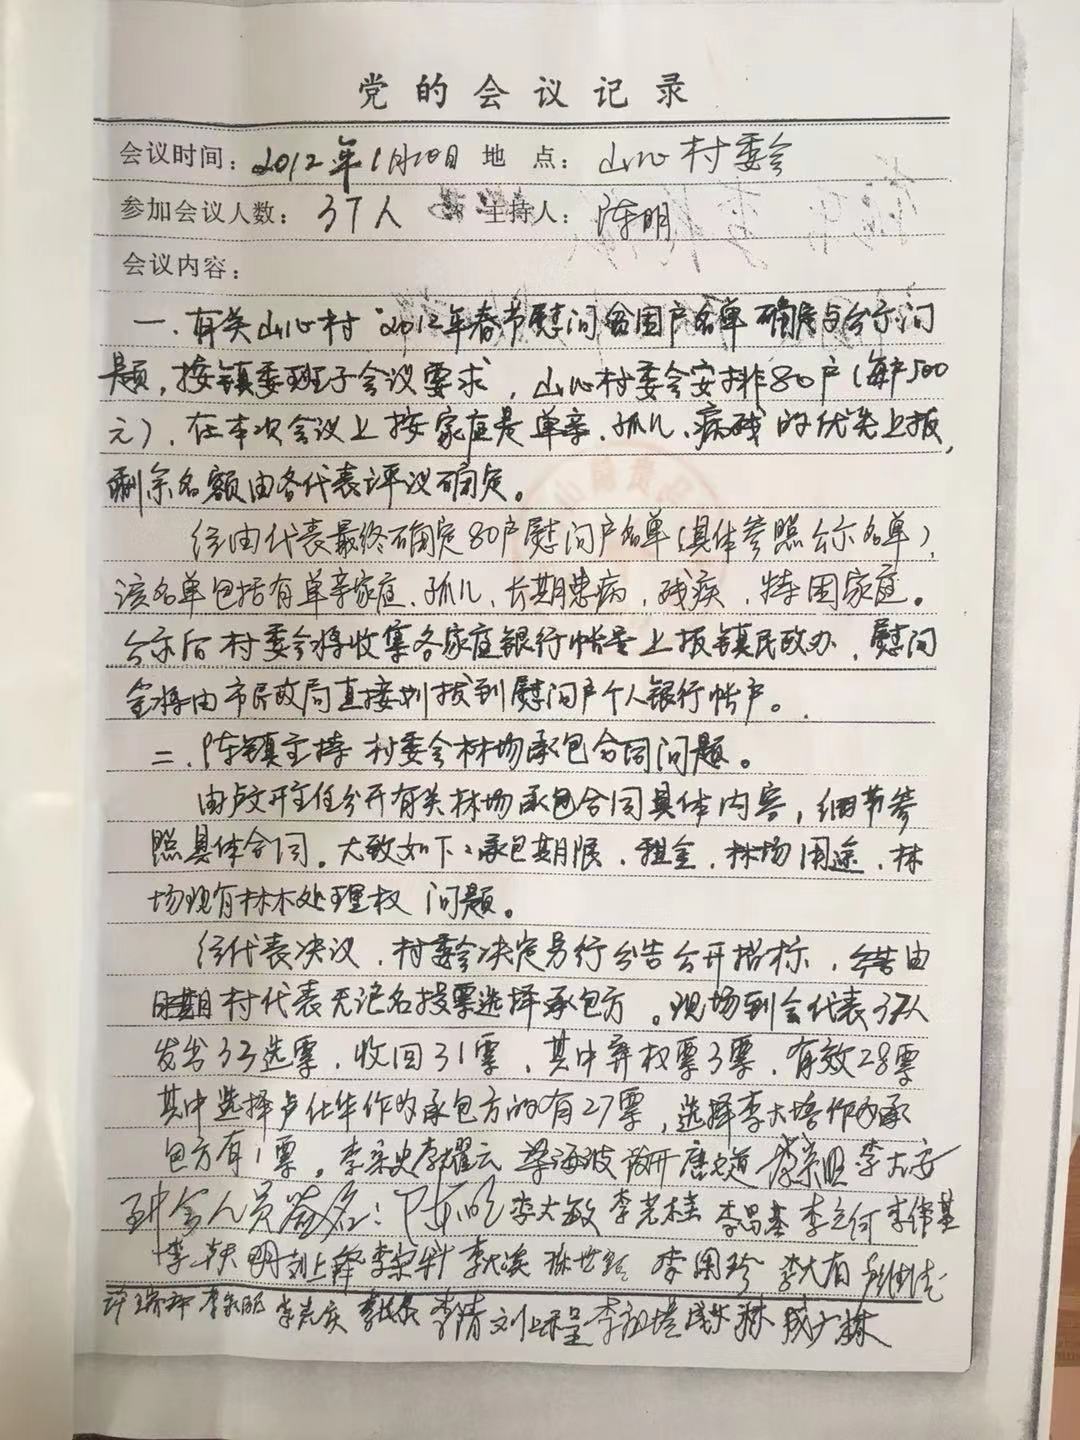 党的会议记录
会议时间：2012年1月20日 地 点：山心村委会
参加会议人数：37人 主持人：陈明
会议内容：
一、有关山心村2012年春节慰问贫困户名单确定与公示问
题，按镇委班子会议要求，山心村委会安排80户（每户500
元），在本次会议上按家庭是单亲、孤儿、病残的优先上报，
剩余名额由各代表评议确定。
经由代表最终确定80户慰问户名单（具体参照公示名单），
该名单包括有单亲家庭、孤儿、长期患病、残疾、特困家庭。
公示后村委会将收集各家庭银行帐号上报镇民政办，慰问
金将由市民政局直接划拨到慰问户个人银行帐户。
二、陈镇主持村委会林场承包合同问题。
由卢文开主任公开有关林场承包合同具体内容，细节参
照具体合同。大致如下：承包期限、租金、林场用途、林
场现有林木处理权问题。
经代表决议，村委会决定另行公告公开招标，由
村代表无记名投票选择承包方。现场到会代表37人
发出33选票，收回31票，其中弃权票3票，有效28票
其中选择卢仕华作为承包方的有27票，选择李大培作为承
包方有1票。李宗史 李耀云 梁海波 李大安
到会人员签名：陈明 李大敏 李光桂 李昌基 李立何 李伟基
李大溪 李国珍 李大有
李光庆 李清